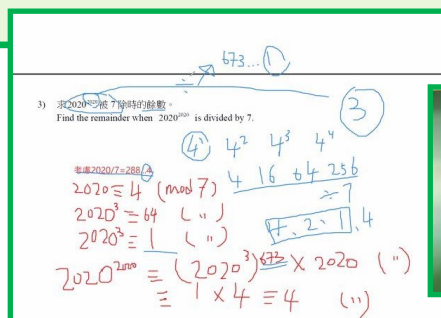 ÷ 673...①
3) 求2020²⁰²⁰被 7 除時的餘數。
Find the remainder when 2020²⁰²⁰ is divided by 7.
③
④ 4² 4³ 4⁴
4 16 64 256
÷7
4、2、1、4
考慮2020/7=288...4
2020≡4 (mod 7)
2020³≡64 (〃)
2020³≡1 (〃)
2020²⁰²⁰≡(2020³)⁶⁷³×2020 (〃)
≡1×4≡4 (〃)